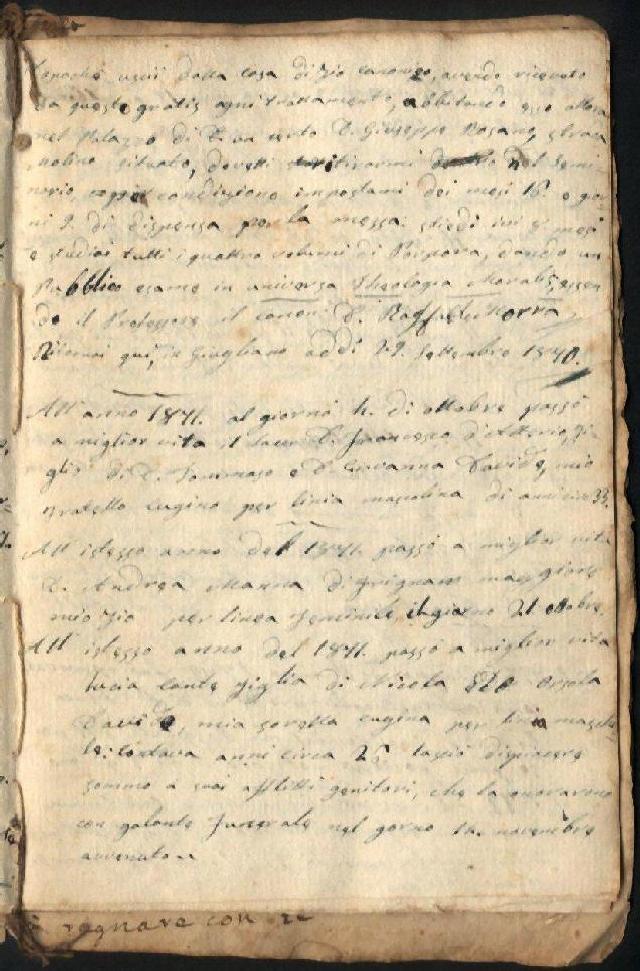 uscii dalla casa di Zio canonico, avendo ricevuto
da queste gratis ogni trattamento, abbitando esso allora
nel Palazzo di D. Giuseppe Rosano, strada
molino situato, dovetti ritirarmi nel Semi-
nario, condizione impostami dei mesi 18. e gior
ni 9. di dispensa per la messa. stiedi ivi 8 mesi
e studiai tutti i quattro volumi di Porpora, dando un
Pubblico esame in universa Theologia Morali, essen
do il Professore il canoni. D. Raffaele Morra
Ritornai qui, in Giugliano addì 29. Settembre 1840.
All'anno 1841. al giorno 4. di ottobre passò
a miglior vita il D. Francesco d'Alterio, Fi-
glio di D. Tommaso e D. Giovanna Davide, mio
Fratello cugino per linia mascolina di anni 33.
All'istesso anno del 1841. passò a miglior vita
D. Andrea Manna di Frignano maggiore
mio Zio per linea Feminile, il giorno 21 ottobre.
All'istesso anno del 1841. passò a miglior vita
Lucia Conte figlia di Nicola ed Orsola
Davide, mia sorella cugina per linia
contava anni circa 26 lasciò dispiacere
sommo a suoi afflitti genitori, che la onorarono
con galante Funerale nel giorno 14. novembre
avvenuto
regnare con